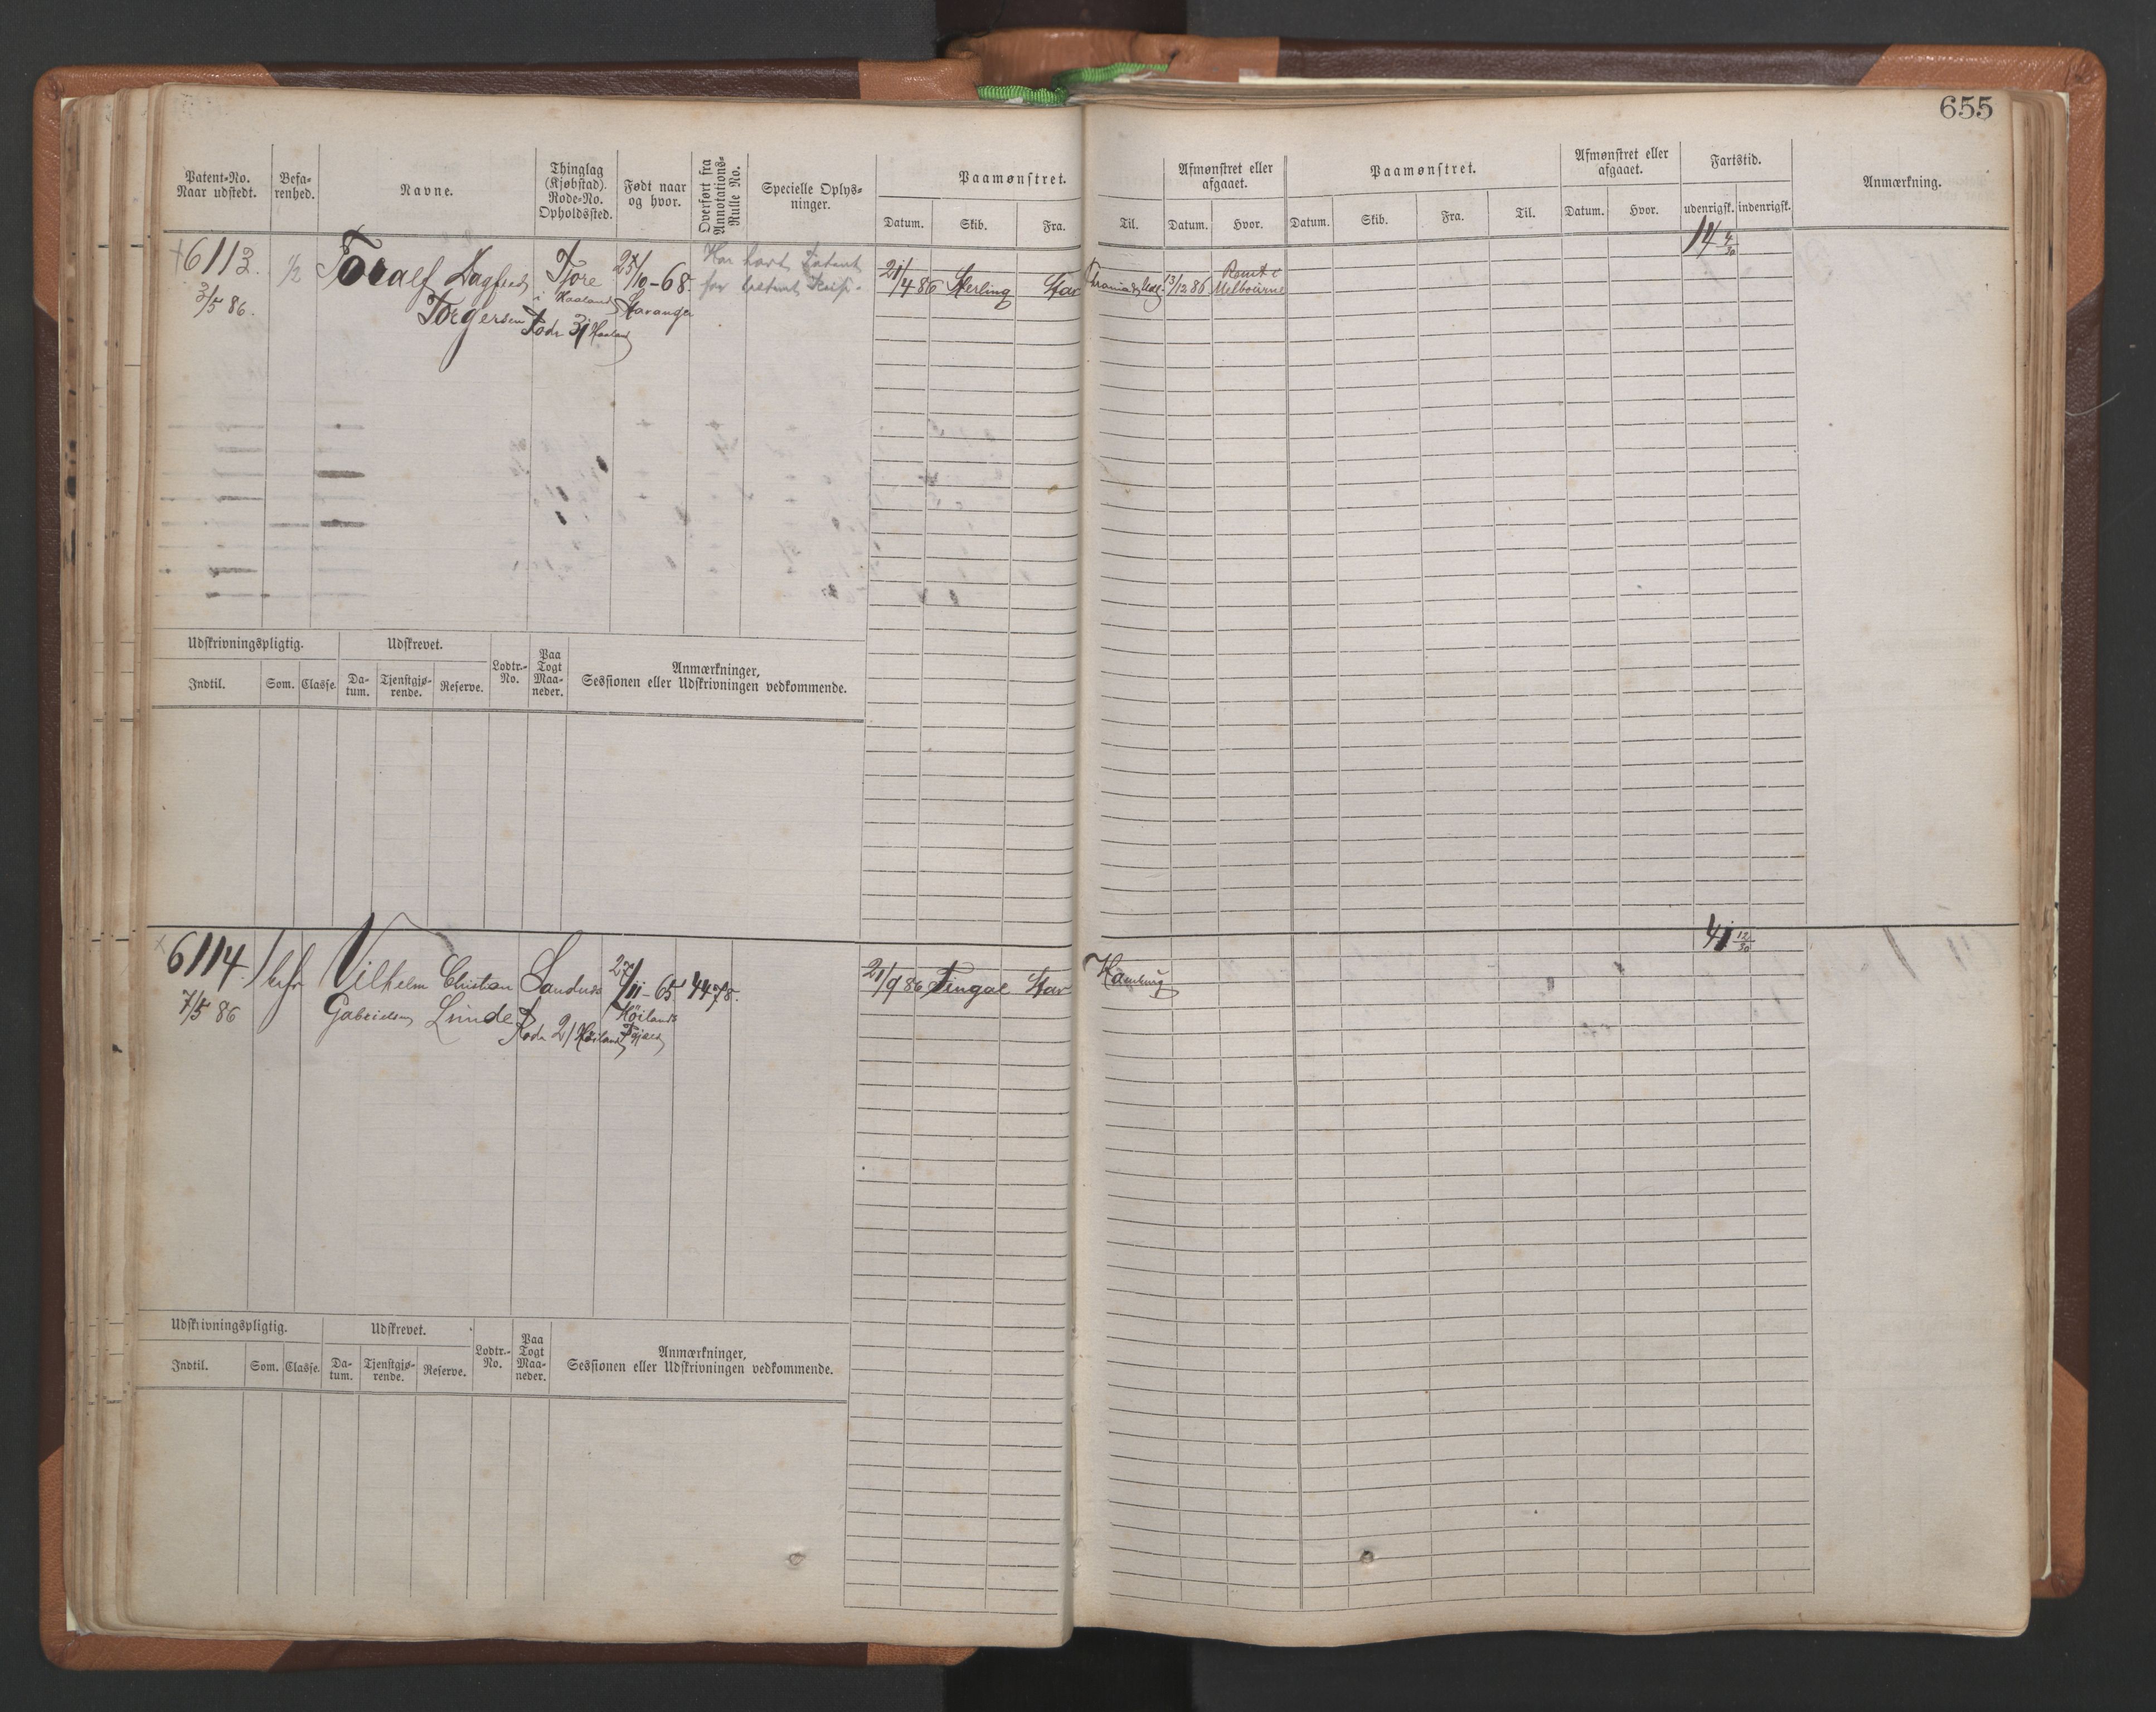 655
Patent-No.
Naar udstedt.
Befa-
renhed.
Navne.
Thinglag
(Kjøbstad).
Rode-No.
Opholdssted.
Født naar
og hvor.
Overført fra
Annotations-
Rulle No.
Specielle Oplys-
ninger.
Paamønstret.
Datum.
Skib.
Fra.
Til.
Afmønstret eller
afgaaet.
Datum.
Hvor.
Paamønstret.
Datum.
Skib.
Fra.
Til.
Afmønstret eller
afgaaet.
Datum.
Hvor.
Fartstid.
udenrigsk.
indenrigsk.
Anmærkning.
6113.
3/5 86.
1/2
Toralf Dagfred
Torgersen
Tjore
i Haaland
Rode 31 Haaland
/10-68
Stavanger
Har havt Patent
for
21/4 86
Sterling
Stav
13/12 86
Rømt i
Melbourne
14 4/30
Udskrivningspligtig.
Udskrevet.
Lodtr.-
No.
Paa
Togt
Maa-
neder.
Anmærkninger,
Sessionen eller Udskrivningen vedkommende.
Indtil.
Som.
Classe.
Da-
tum.
Tjenstgjø-
rende.
Reserve.
6114.
7/5 86
Vilhelm Christian
Gabrielsen Lunde
Rode 21 Höiland
27/11-65
Höilands
4478.
21/9 86
Fingal
Stav
Hamburg
41 12/30
Udskrivningspligtig.
Udskrevet.
Lodtr.-
No.
Paa
Togt
Maa-
neder.
Anmærkninger,
Sessionen eller Udskrivningen vedkommende.
Indtil.
Som.
Classe.
Da-
tum.
Tjenstgjø-
rende.
Reserve.